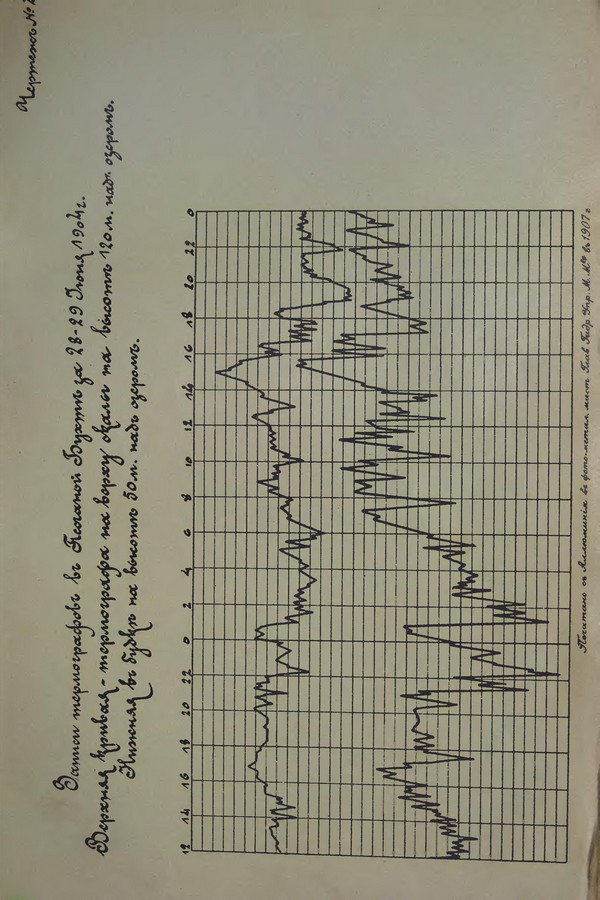 Чертежъ № 2
Записи термографовъ въ Песчаной Бухтѣ за 28-29 Іюня 1904 г.
Верхняя кривая - термографа на верху скалы на высотѣ 120 м. надъ озеромъ.
Нижняя въ будкѣ на высотѣ 50 м. надъ озеромъ.
12 14 16 18 20 22 0 2 4 6 8 10 12 14 16 18 20 22 0
Печатано съ Аллюминія въ фото-метал. маст. Глав. Гидр. Упр. М. Мва въ 1907 г.